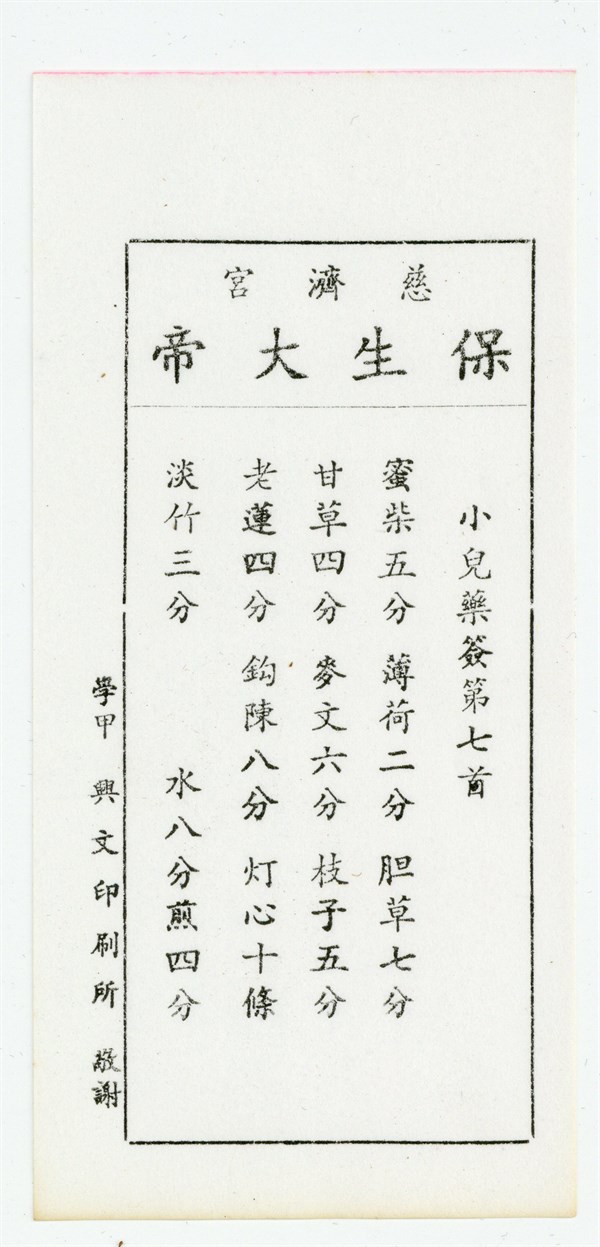 慈濟宮
保生大帝
小兒藥簽第七首
蜜柴五分 薄荷二分 胆草七分
甘草四分 麥文六分 枝子五分
老蓮四分 鈎陳八分 灯心十條
淡竹三分 水八分煎四分
學甲 興文印刷所 敬謝